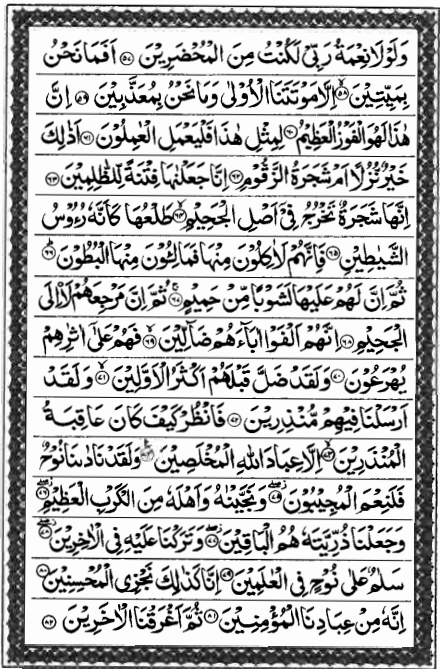 وَلَوْلَا نِعْمَةُ رَبِّيْ لَكُنْتُ مِنَ الْمُحْضَرِيْنَ ﴿۵۷﴾ اَفَمَا نَحْنُ
بِمَيِّتِيْنَ ﴿۵۸﴾ اِلَّا مَوْتَتَنَا الْاُوْلٰى وَمَا نَحْنُ بِمُعَذَّبِيْنَ ﴿۵۹﴾ اِنَّ
هٰذَا لَهُوَ الْفَوْزُ الْعَظِيْمُ ﴿۶۰﴾ لِمِثْلِ هٰذَا فَلْيَعْمَلِ الْعٰمِلُوْنَ ﴿۶۱﴾ اَذٰلِكَ
خَيْرٌ نُّزُلًا اَمْ شَجَرَةُ الزَّقُّوْمِ ﴿۶۲﴾ اِنَّا جَعَلْنٰهَا فِتْنَةً لِّلظّٰلِمِيْنَ ﴿۶۳﴾
اِنَّهَا شَجَرَةٌ تَخْرُجُ فِيْۤ اَصْلِ الْجَحِيْمِ ﴿۶۴﴾ طَلْعُهَا كَاَنَّهٗ رُءُوْسُ
الشَّيٰطِيْنِ ﴿۶۵﴾ فَاِنَّهُمْ لَاٰكِلُوْنَ مِنْهَا فَمَالِـُٔوْنَ مِنْهَا الْبُطُوْنَ ﴿۶۶﴾
ثُمَّ اِنَّ لَهُمْ عَلَيْهَا لَشَوْبًا مِّنْ حَمِيْمٍ ﴿۶۷﴾ ثُمَّ اِنَّ مَرْجِعَهُمْ لَا۟اِلَى
الْجَحِيْمِ ﴿۶۸﴾ اِنَّهُمْ اَلْفَوْا اٰبَآءَهُمْ ضَآلِّيْنَ ﴿۶۹﴾ فَهُمْ عَلٰۤى اٰثٰرِهِمْ
يُهْرَعُوْنَ ﴿۷۰﴾ وَلَقَدْ ضَلَّ قَبْلَهُمْ اَكْثَرُ الْاَوَّلِيْنَ ﴿۷۱﴾ وَلَقَدْ
اَرْسَلْنَا فِيْهِمْ مُّنْذِرِيْنَ ﴿۷۲﴾ فَانْظُرْ كَيْفَ كَانَ عَاقِبَةُ
الْمُنْذَرِيْنَ ﴿۷۳﴾ اِلَّا عِبَادَ اللّٰهِ الْمُخْلَصِيْنَ ﴿۷۴﴾ وَلَقَدْ نَادٰىنَا نُوْحٌ
فَلَنِعْمَ الْمُجِيْبُوْنَ ﴿۷۵﴾ وَنَجَّيْنٰهُ وَاَهْلَهٗ مِنَ الْكَرْبِ الْعَظِيْمِ ﴿۷۶﴾
وَجَعَلْنَا ذُرِّيَّتَهٗ هُمُ الْبَاقِيْنَ ﴿۷۷﴾ وَتَرَكْنَا عَلَيْهِ فِى الْاٰخِرِيْنَ ﴿۷۸﴾
سَلٰمٌ عَلٰى نُوْحٍ فِى الْعٰلَمِيْنَ ﴿۷۹﴾ اِنَّا كَذٰلِكَ نَجْزِى الْمُحْسِنِيْنَ ﴿۸۰﴾
اِنَّهٗ مِنْ عِبَادِنَا الْمُؤْمِنِيْنَ ﴿۸۱﴾ ثُمَّ اَغْرَقْنَا الْاٰخَرِيْنَ ﴿۸۲﴾